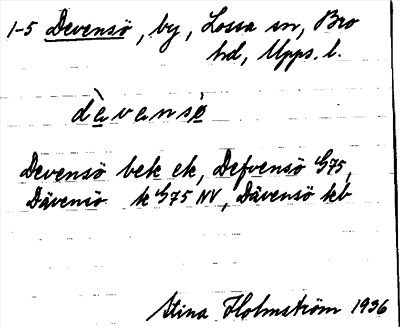 1-5 Devensö, by, Lossa sn, Bro
hd, Upps. l.
dèvansè
Devensö bek ek, Defvensö G75,
Dävensö k G75 NV, Dävensö kb
Stina Holmström 1936